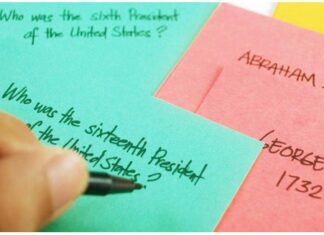 Who was the sixth President
of the United States?
Who was the sixteenth President
of the United States?
ABRAHAM
GEORGE
1732